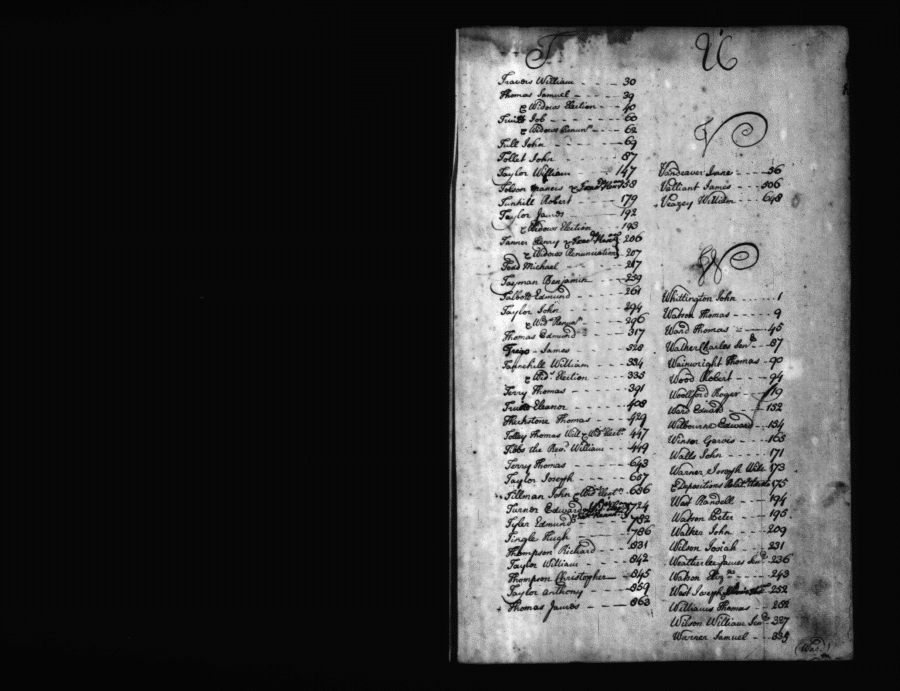 T
Travers William - - - 30
Thomas Samuel - - - 39
& Widows Election - - 40
Truitt Job - - - 60
& Widows Renunn - - 62
Tull John - - - 69
Tollet John - - - 87
Taylor William - - - 147
Tolson Francis & 158
Tunhill Robert - - - 179
Taylor James - - - 192
& Widows Election - - - 193
Tanner Henry & 206
& Widows Renunciation 207
Todd Michael - - - 217
Tasman Benjamin - - - 259
Talbott Edmund - - - 261
Taylor John - - - 294
& Wids Renunn - - - 296
Thomas Edmund - - - 317
Trego James - - - 328
Tannehill William - - - 334
& Wids Election - - - 335
Terry Thomas - - - 391
Truitt Eleanor - - - 408
Theckstone Thomas - - - 429
Tolley Thomas Will & Wids Elect. 447
Tibbs the Revd. William - - 449
Terry Thomas - - - 643
Taylor Joseph - - - 687
Tillman John & 696
Turner Edward 724
Tyler Edmund 782
Tingle Hugh - - - 786
Thompson Richard - - - 831
Taylor William - - - 842
Thompson Christopher - - 845
Taylor Anthony - - - 859
Thomas James - - - 863
U
V
Vandeaver - - - 36
Valliant James - - - 506
Veazey William - - - 648
W
Whittington John - - - 1
Watson Thomas - - - 9
Ward Thomas - - - 45
Walker Charles Senr - - 87
Wainwright Thomas - - 90
Wood Robert - - - 94
Woollford Roger - - - 119
Ward Edward - - - 152
Wilbourne Edward - - - 154
Winsor Garvis - - - 165
Watts John - - - 171
Warner Joseph Will 173
& Depositions 175
West Randell - - - 194
Watson Peter - - - 195
Walker John - - - 209
Wilson Josiah - - - 231
Weatherlee James Senr - - 236
Watson - - - 243
West Joseph 252
Williams Thomas - - - 282
Wilson William Senr - - 327
Warner Samuel - - - 339